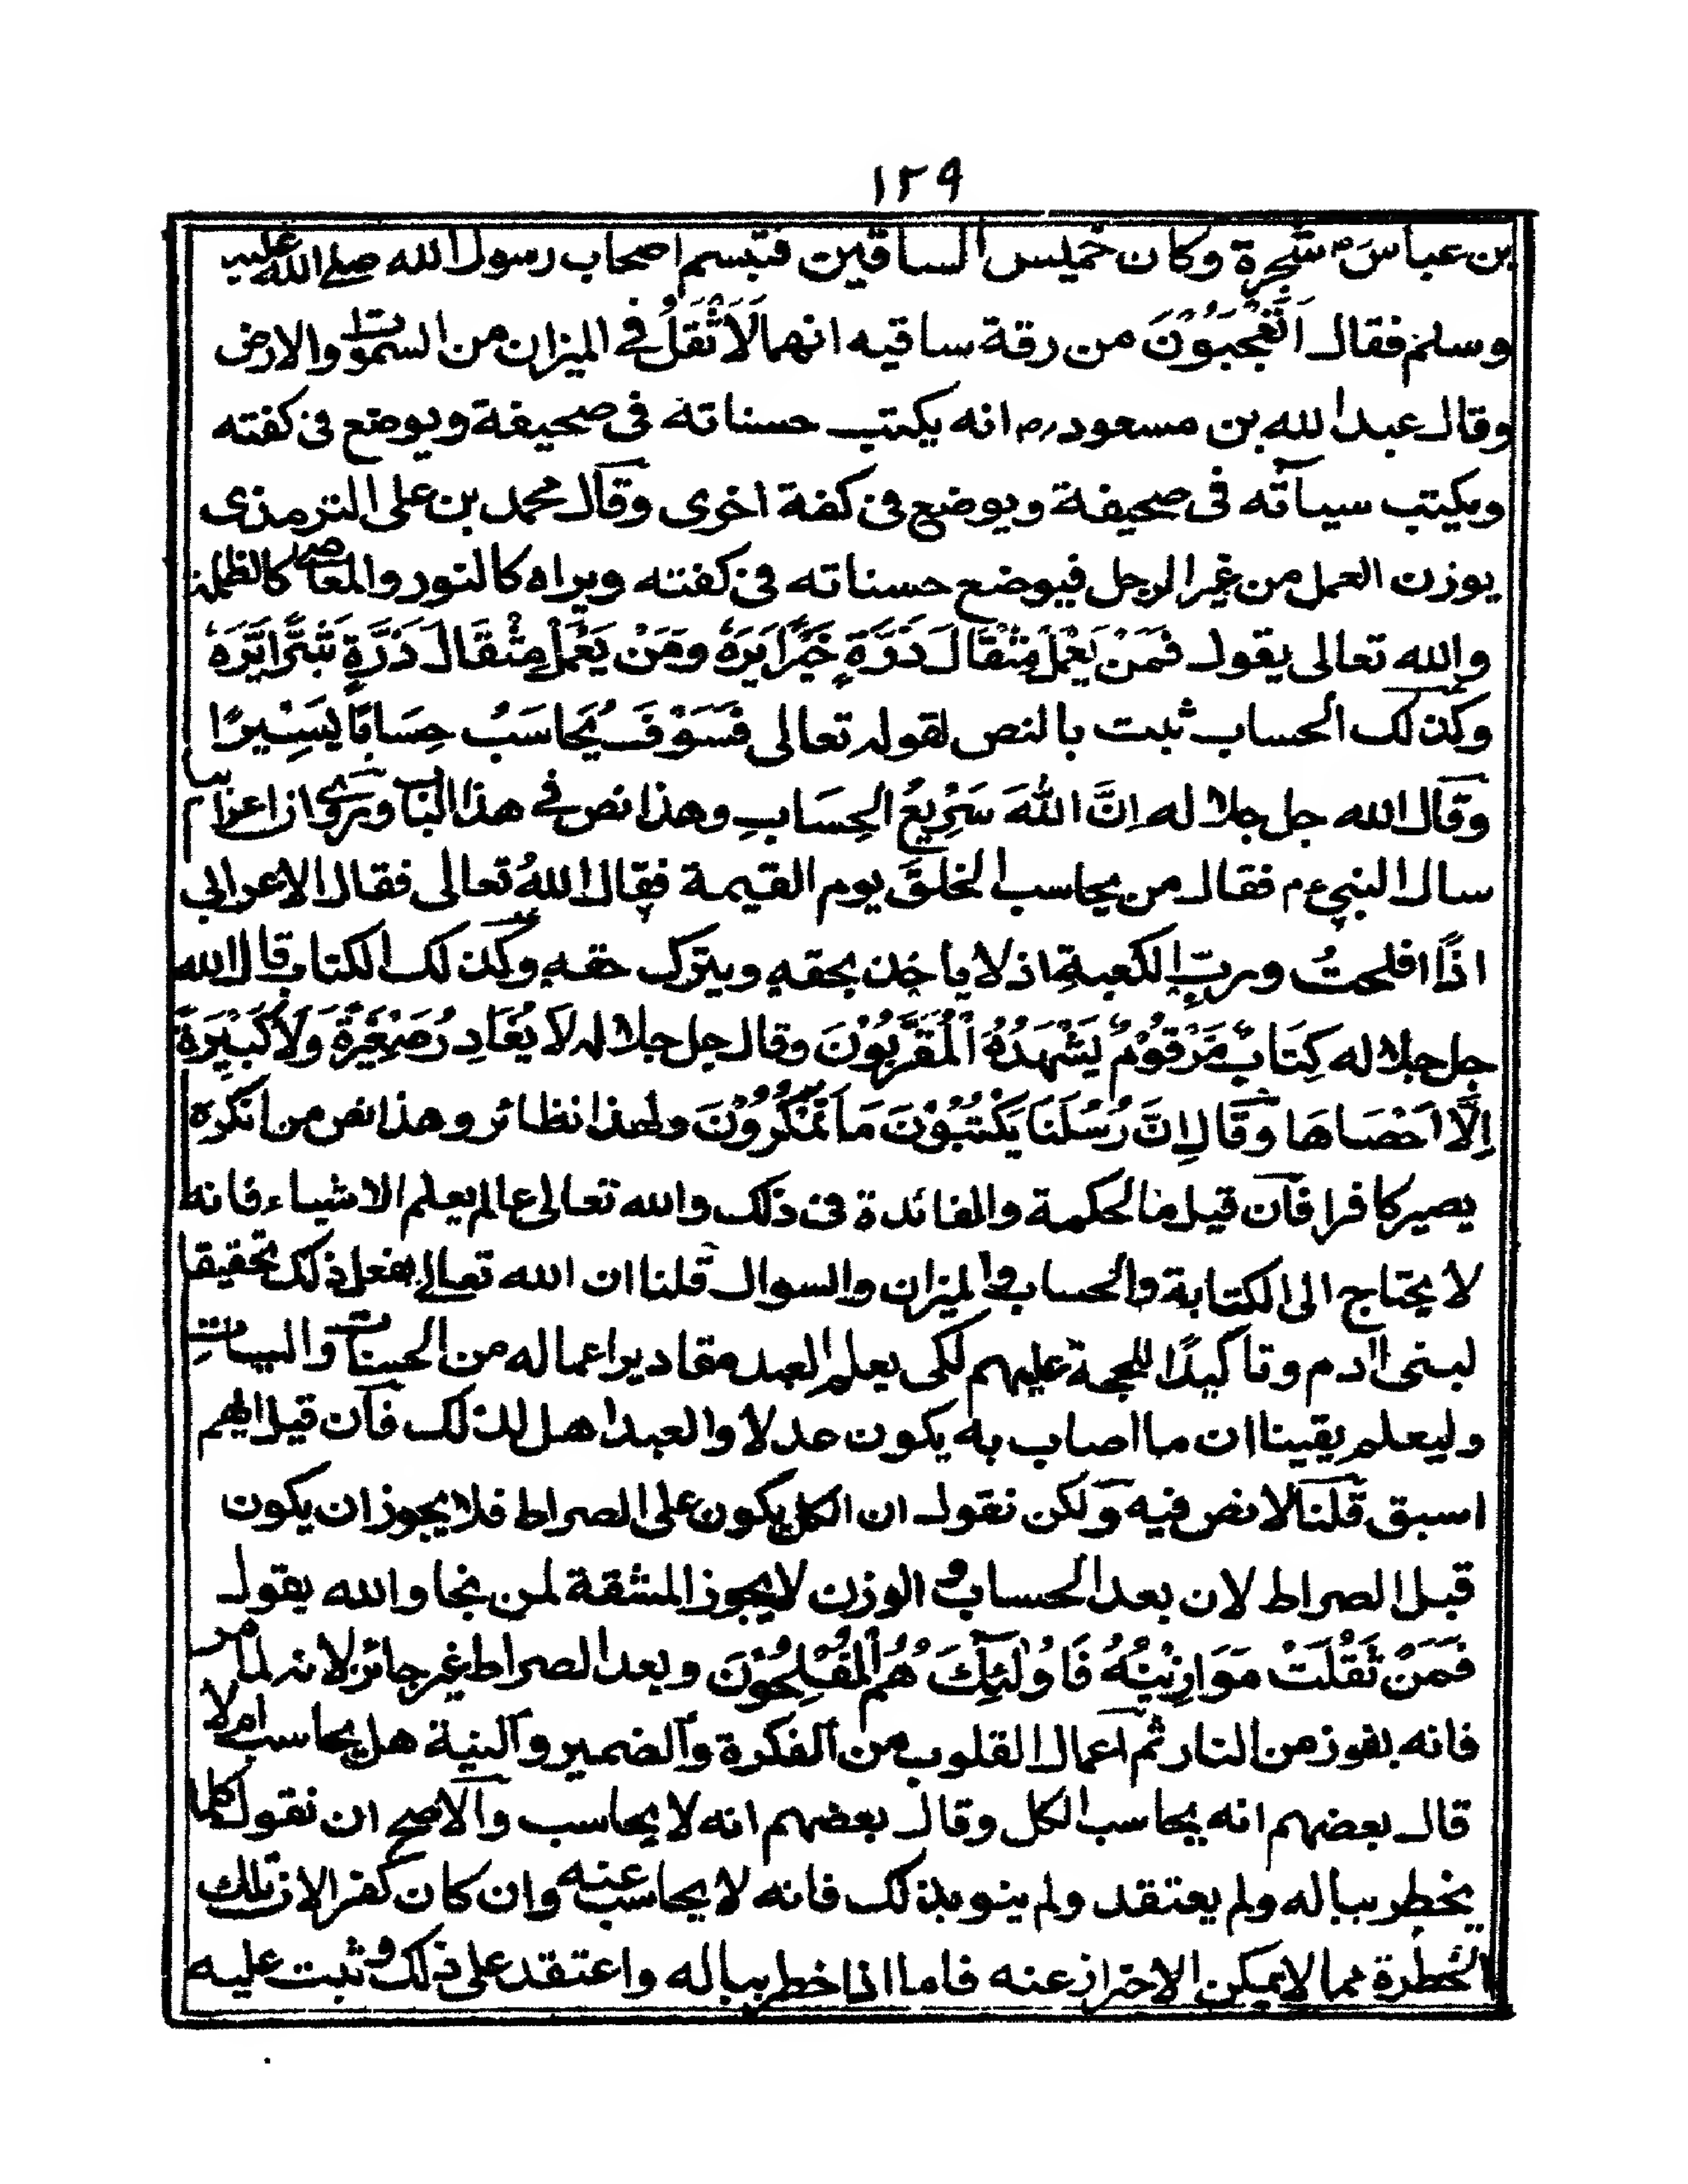 ١٢٩
بن عباس رض شجرة وكان خميس الساقين فتبسم اصحاب رسول الله صلى الله عليه
وسلم فقال اَتَعْجَبُوْنَ من رقة ساقيه انهما لَاَثْقَلُ فى الميزان من السموات والارض
وقال عبد الله بن مسعود رض انه يكتب حسناته فى صحيفة ويوضع فى كفته
ويكتب سيآته فى صحيفة ويوضع فى كفة اخرى وقال محمد بن على الترمذى
يوزن العمل من غير الرجل فيوضع حسناته فى كفته ويراه كالنور والمعاصى كالظلمة
والله تعالى يقول فَمَنْ يَعْمَلْ مِثْقَالَ ذَرَّةٍ خَيْرًا يَرَهٗ وَمَنْ يَعْمَلْ مِثْقَالَ ذَرَّةٍ شَرًّا يَّرَهٗ
وكذلك الحساب ثبت بالنص لقوله تعالى فَسَوْفَ يُحَاسَبُ حِسَابًا يَسِيْرًا
وقال الله جل جلاله اِنَّ اللهَ سَرِيْعُ الْحِسَابِ وهذا نص فى هذا الباب وروى ان اعرابيا
سال النبى ءم فقال من يحاسب الخلق يوم القيمة فقال اللهُ تعالى فقال الاعرابى
اذًا افلحتُ وربِّ الكعبةِ اذ لا ياخذ بحقه ويترك حقه وكذلك الكتاب قال الله
جل جلاله كِتَابٌ مَّرْقُوْمٌ يَشْهَدُهُ الْمُقَرَّبُوْنَ وقال جل جلاله لَا يُغَادِرُ صَغِيْرَةً وَلَا كَبِيْرَةً
اِلَّا اَحْصَاهَا وَقَالَ اِنَّ رُسُلَنَا يَكْتُبُوْنَ مَا تَمْكُرُوْنَ ولهذا نظائر وهذا نص من انكره
يصير كافرا فان قيل ما الحكمة والفائدة فى ذلك والله تعالى عالم يعلم الاشياء فانه
لا يحتاج الى الكتابة والحساب والميزان والسوال قلنا ان الله تعالى يفعل ذلك تحقيقا
لبنى اٰدم وتاكيدًا للحجة عليهم لكى يعلم العبد مقادير اعماله من الحسنات والسيات
وليعلم يقينا ان ما اصاب به يكون عدلا والعبد اهل لذلك فان قيل ايهم
اسبق قلنا لا نص فيه ولكن نقول ان الكل يكون على الصراط فلا يجوز ان يكون
قبل الصراط لان بعد الحساب والوزن لا يجوز المشقة لمن نجا والله يقول
فَمَنْ ثَقُلَتْ مَوَازِيْنُهٗ فَاُولٰئِكَ هُمُ الْمُفْلِحُوْنَ وبعد الصراط غير جائز لانه لما مر
فانه يفوز من النار ثم اعمال القلوب من الفكرة والضمير والنية هل يحاسب ام لا
قال بعضهم انه يحاسب الكل وقال بعضهم انه لا يحاسب والاصح ان نقول كلما
يخطر بباله ولم يعتقد ولم ينو بذلك فانه لا يحاسب عنه وان كان كفرا لان تلك
الخطرة مما لا يمكن الاحتراز عنه فاما اذا خطر بباله واعتقد على ذلك وثبت عليه